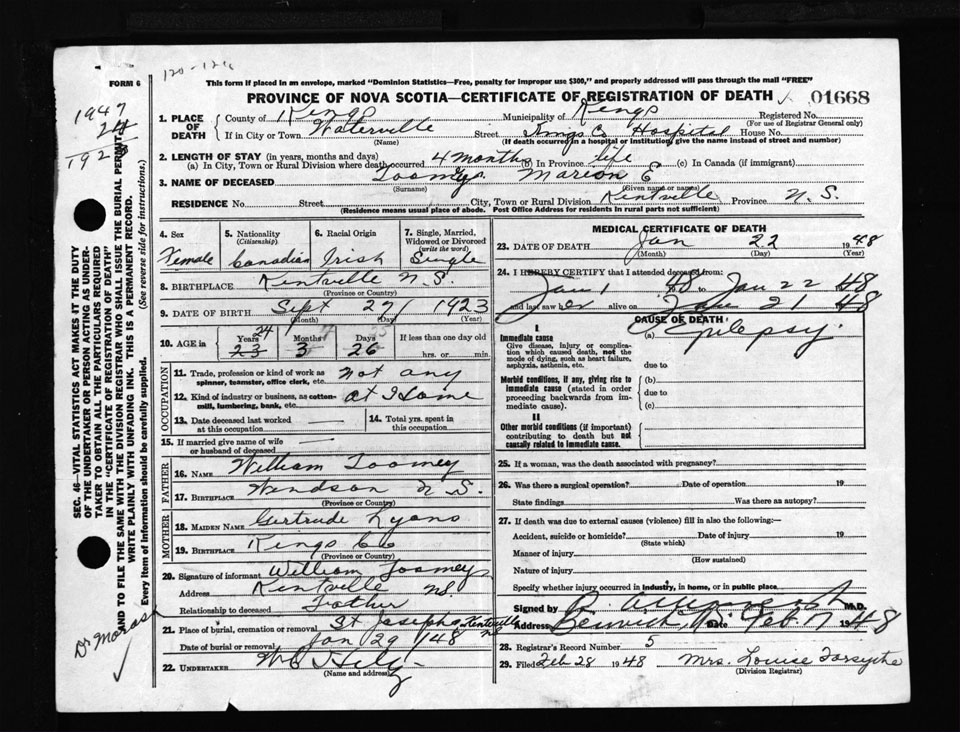 FORM 6
120-12
This form if placed in an envelope, marked "Dominion Statistics—Free, penalty for improper use $300," and properly addressed will pass through the mail "FREE"
PROVINCE OF NOVA SCOTIA—CERTIFICATE OF REGISTRATION OF DEATH 01668
1947
24
1923
SEC. 46—VITAL STATISTICS ACT MAKES IT THE DUTY
OF THE UNDERTAKER OR PERSON ACTING AS UNDER-
TAKER TO OBTAIN ALL THE PARTICULARS REQUIRED
IN THE "CERTIFICATE OF REGISTRATION OF DEATH"
AND TO FILE THE SAME WITH THE DIVISION REGISTRAR WHO SHALL ISSUE THE BURIAL PERMIT
WRITE PLAINLY WITH UNFADING INK. THIS IS A PERMANENT RECORD.
Every item of Information should be carefully supplied. (See reverse side for instructions.)
Dr Moras
1. PLACE OF DEATH County of Kings Municipality of Kings Registered No.
(For use of Registrar General only)
If in City or Town Waterville Street Kings Co Hospital House No.
(Name) (If death occurred in a hospital or institution, give the name instead of street and number)
2. LENGTH OF STAY (in years, months and days)
(a) In City, Town or Rural Division where death occurred 4 months (b) In Province life (c) In Canada (if immigrant)
3. NAME OF DECEASED Toomey Marion E
(Surname) (Given name or names)
RESIDENCE No. Street City, Town or Rural Division Kentville Province N.S.
(Residence means usual place of abode. Post Office Address for residents in rural parts not sufficient)
4. Sex 5. Nationality (Citizenship) 6. Racial Origin 7. Single, Married, Widowed or Divorced (write the word)
Female Canadian Irish Single
8. BIRTHPLACE Kentville N.S.
(Province or Country)
9. DATE OF BIRTH Sept 27 1923
(Month) (Day) (Year)
10. AGE in Years Months Days If less than one day old
24
23 3 26 hrs. or min.
OCCUPATION
11. Trade, profession or kind of work as spinner, teamster, office clerk, etc. Not any
12. Kind of industry or business, as cotton-mill, lumbering, bank, etc. At Home
13. Date deceased last worked at this occupation 14. Total yrs. spent in this occupation
15. If married give name of wife or husband of deceased
FATHER
16. NAME William Toomey
17. BIRTHPLACE Windsor N.S.
(Province or Country)
MOTHER
18. MAIDEN NAME Gertrude Lyons
19. BIRTHPLACE Kings Co
(Province or Country)
20. Signature of informant William Toomey
Address Kentville NS.
Relationship to deceased Father
21. Place of burial, cremation or removal St Josephs Kentville NS
Date of burial or removal Jan 29 1948
22. UNDERTAKER
(Name and address)
MEDICAL CERTIFICATE OF DEATH
23. DATE OF DEATH Jan 22 1948
(Month) (Day) (Year)
24. I HEREBY CERTIFY that I attended deceased from:
Jan 1 48 to Jan 22 48
and last saw her alive on Jan 21 48
CAUSE OF DEATH
I
Immediate cause (a) Epilepsy.
Give disease, injury or complication which caused death, not the mode of dying, such as heart failure, asphyxia, asthenia, etc. due to
Morbid conditions, if any, giving rise to immediate cause (stated in order proceeding backwards from immediate cause). (b)
due to
(c)
II
Other morbid conditions (if important) contributing to death but not causally related to immediate cause.
25. If a woman, was the death associated with pregnancy?
26. Was there a surgical operation? Date of operation 19
State findings Was there an autopsy?
27. If death was due to external causes (violence) fill in also the following:—
Accident, suicide or homicide? Date of injury 19
(State which)
Manner of injury
(How sustained)
Nature of injury
Specify whether injury occurred in industry, in home, or in public place
Signed by M.D.
Address Berwick, N.S. Date Feb. 17 1948
28. Registrar's Record Number 5
29. Filed Feb 28 1948 Mrs. Louise Forsythe
(Division Registrar)